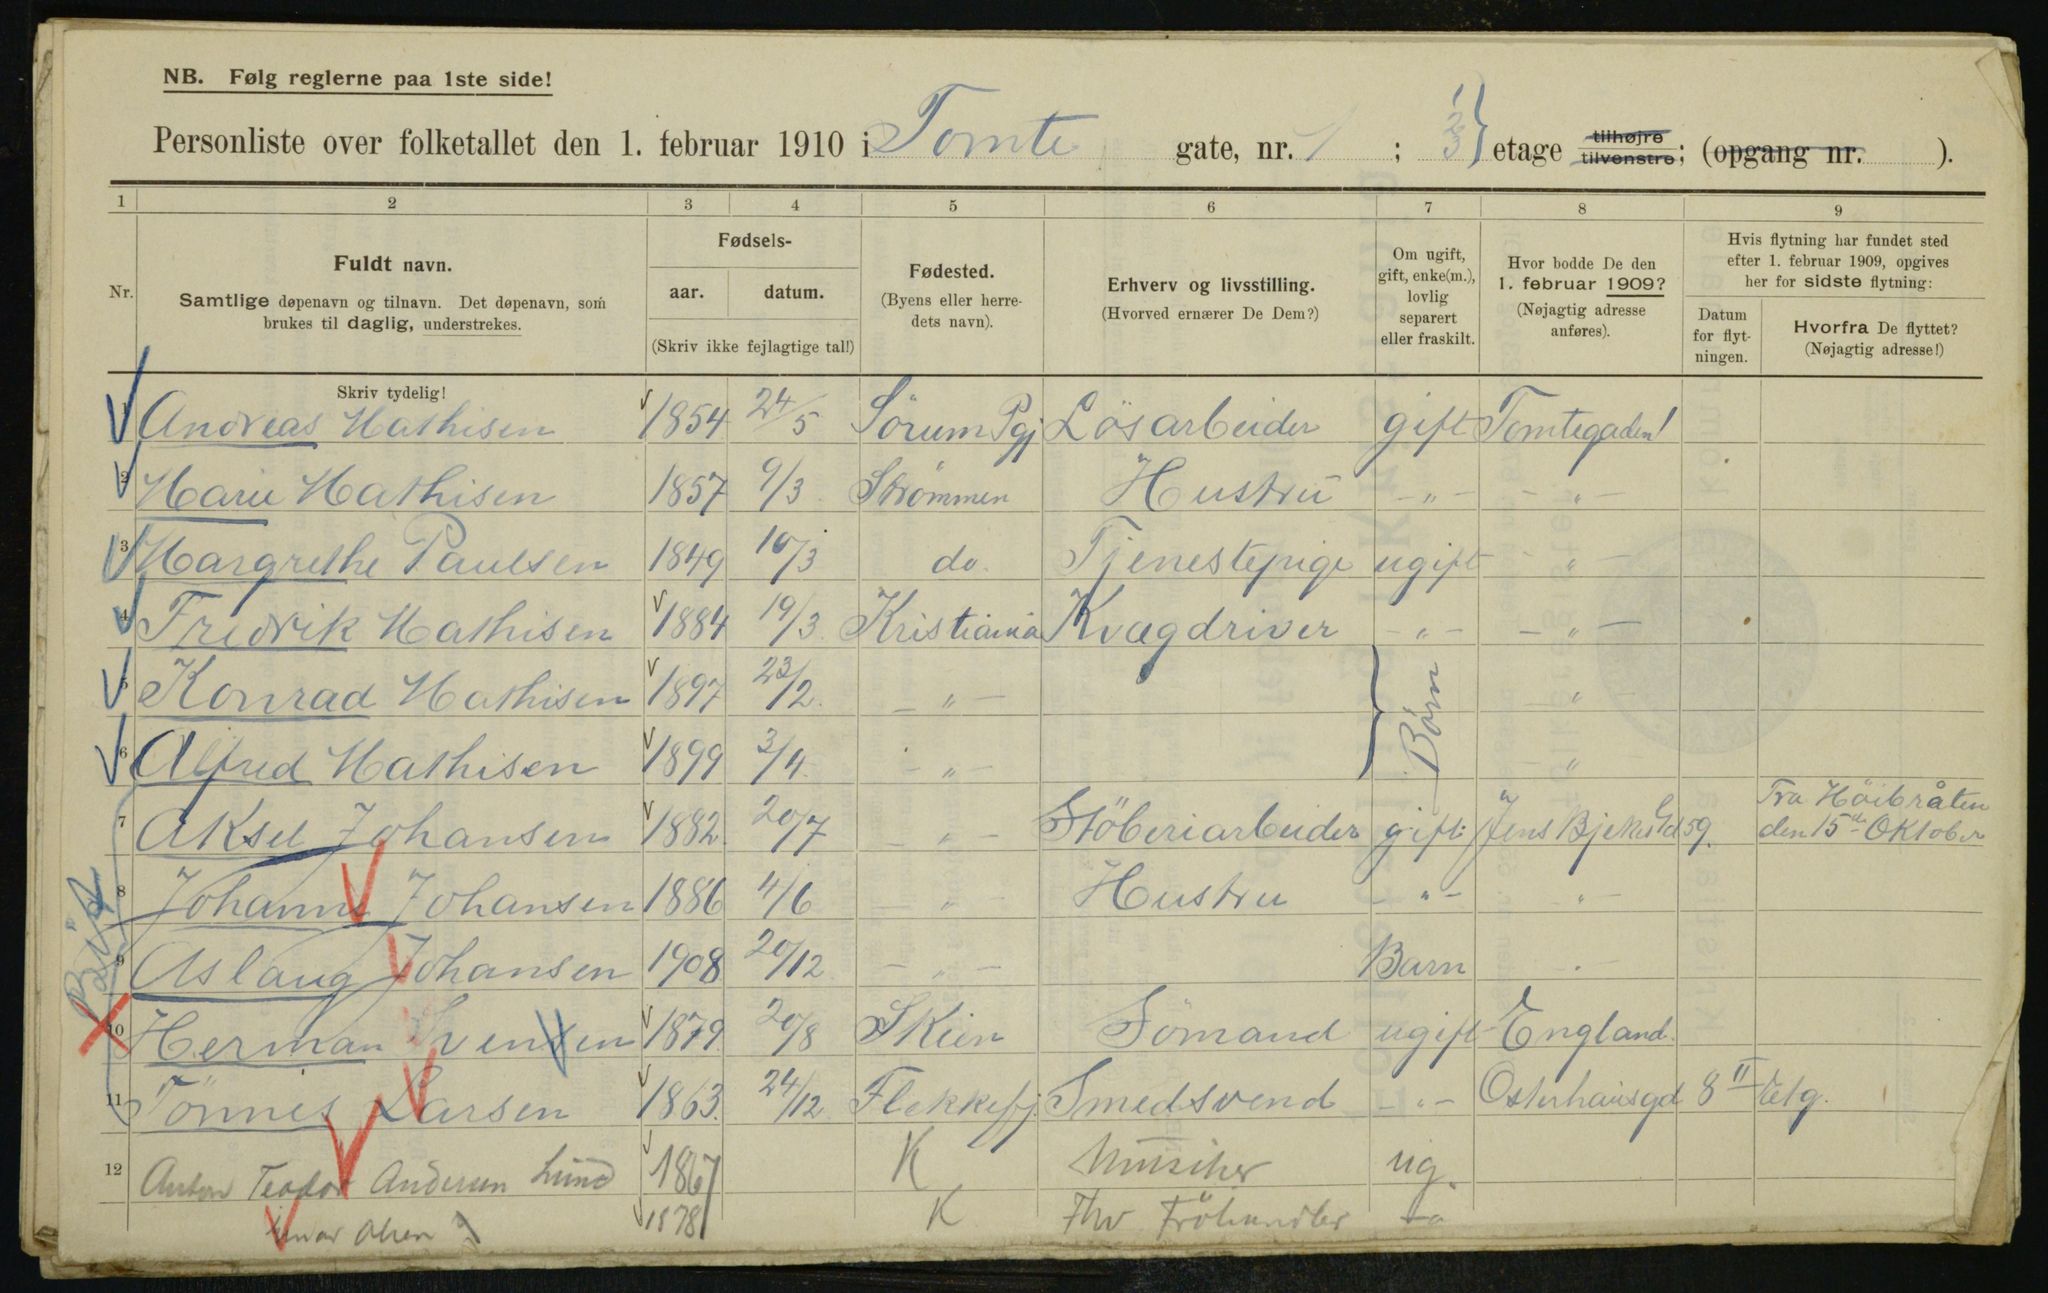 NB. Følg reglerne paa 1ste side!
Personliste over folketallet den 1. februar 1910 i Tomte gate, nr. 1 ; 1 2 3 } etage tilhøjre tilvenstre; (opgang nr. ).
1 2 3 4 5 6 7 8 9
Nr.
Fuldt navn.
Samtlige døpenavn og tilnavn. Det døpenavn, som
brukes til daglig, understrekes.
Skriv tydelig!
Fødsels-
aar. datum.
(Skriv ikke fejlagtige tal!)
Fødested.
(Byens eller herre-
dets navn).
Erhverv og livsstilling.
(Hvorved ernærer De Dem?)
Om ugift,
gift, enke(m.),
lovlig
separert
eller fraskilt.
Hvor bodde De den
1. februar 1909?
(Nøjagtig adresse
anføres).
Hvis flytning har fundet sted
efter 1. februar 1909, opgives
her for sidste flytning:
Datum
for flyt-
ningen.
Hvorfra De flyttet?
(Nøjagtig adresse!)
1 Andreas Mathisen 1854 24/5 Sörum Pgj Lösarbeider gift Tomtegaden 1
2 Marie Mathisen 1857 9/3 Strömmen Hustru -"- -"-
3 Margrethe Paulsen 1849 10/3 do. Tjenestepige ugift -"-
4 Fredrik Mathisen 1884 19/3 Kristiania Kvægdriver -"- -"-
5 Konrad Mathisen 1897 23/2 -"- } Börn -"-
6 Alfred Mathisen 1899 3/4 -"- -"-
7 Aksel Johansen 1882 20/7 -"- Stöberiarbeider gift Jens Bjelkesgd 59. Fra Höibråten
den 15de Oktober
8 Johanne Johansen 1886 4/6 -"- Hustru -"- -"-
9 Aslaug Johansen 1908 20/12 -"- Barn -"-
10 Herman Svensen 1879 20/8 Skien Sömand ugift England.
11 Tönnes Larsen 1863. 24/12 Flekkefj. Smedsvend -"- Osterhausgd 8 II Etg.
12 Anton Teodor Andersen Lund 1867 K Musiker ug.
Einar Olsen 1878 K Fhv Fröhandler